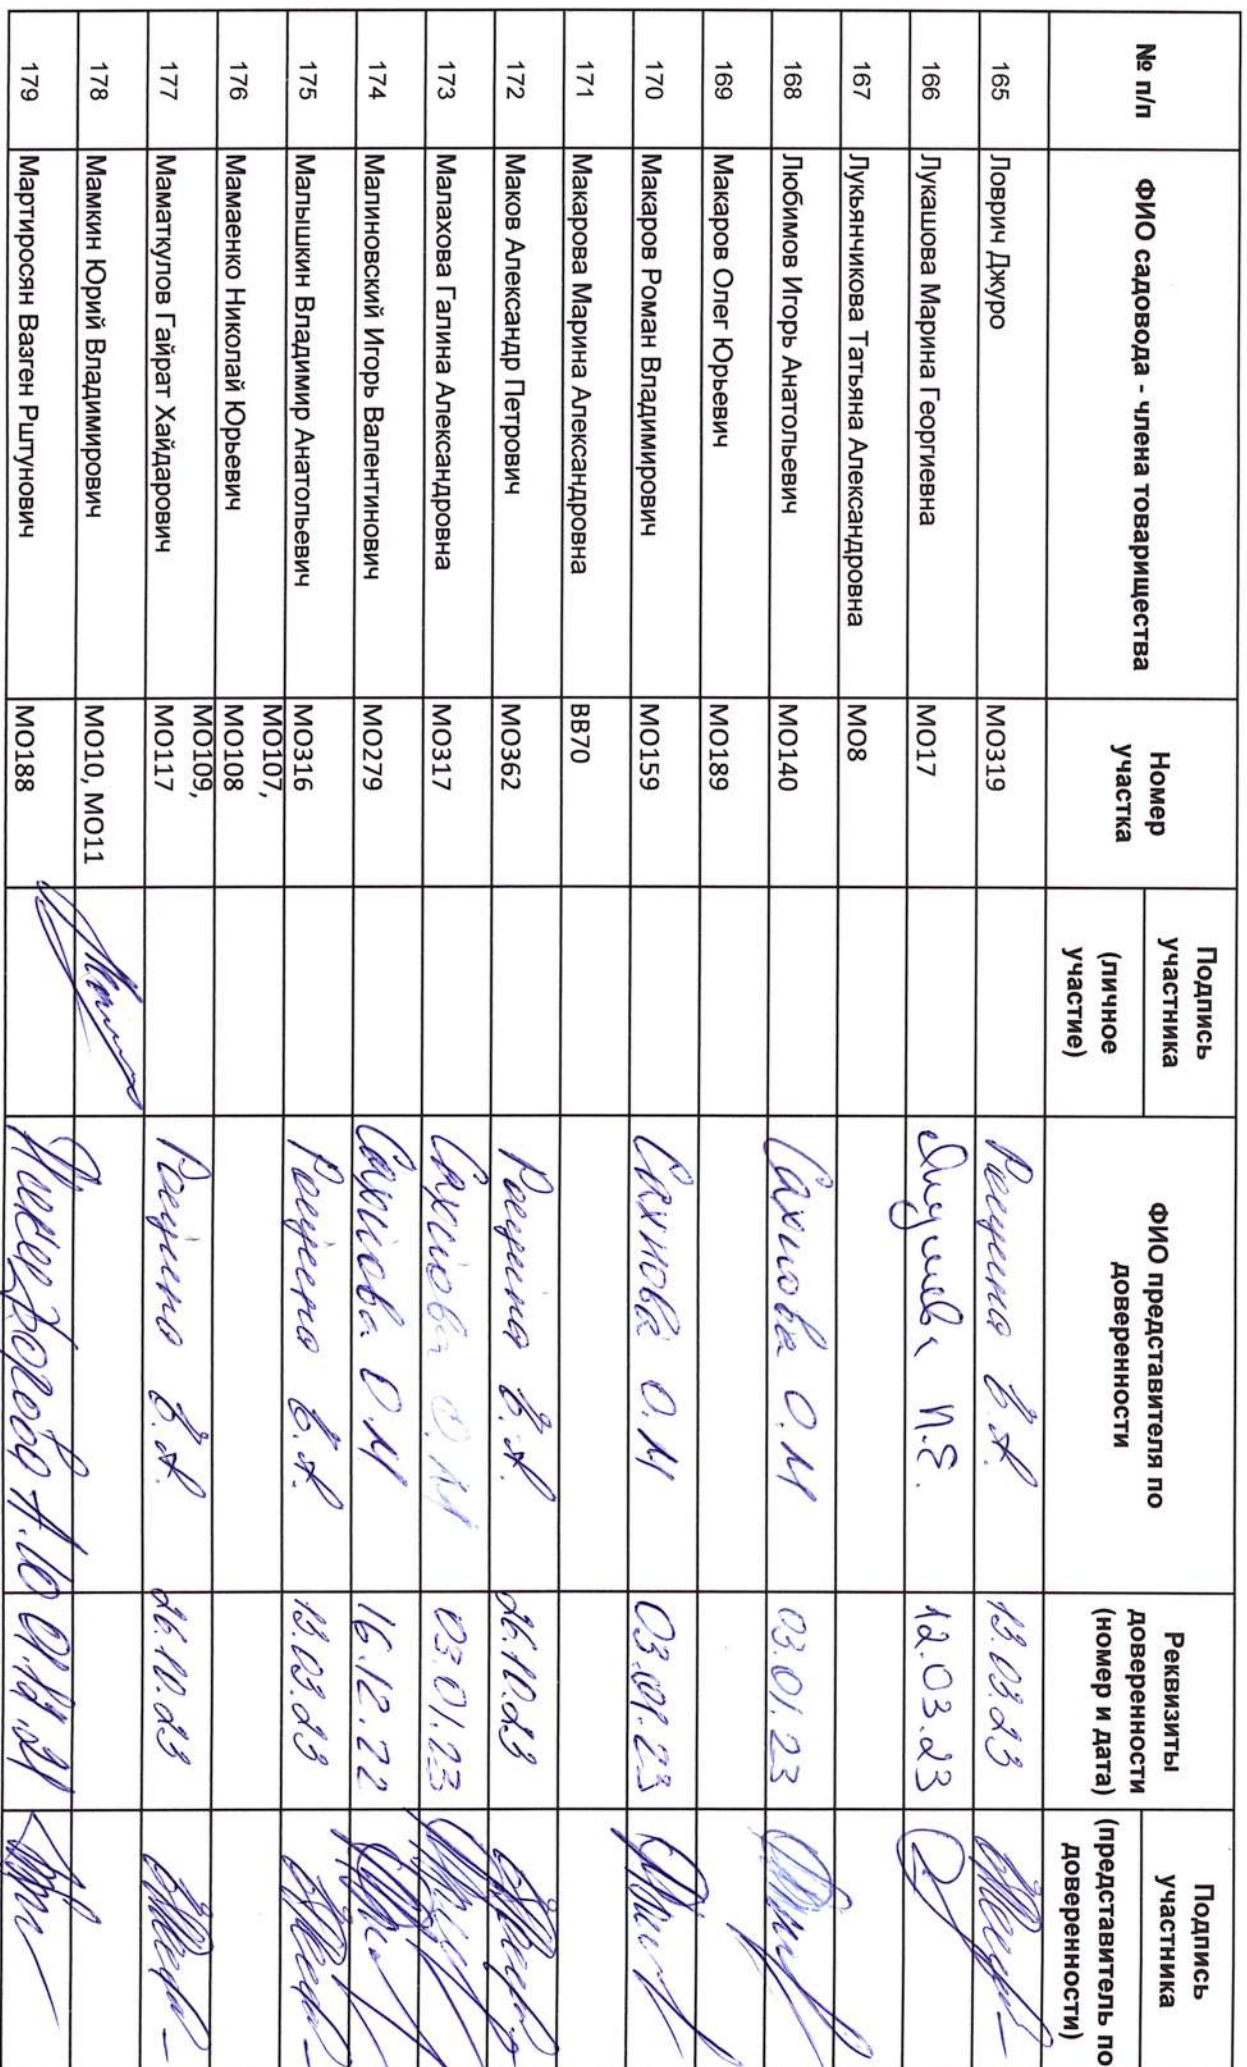 № п/п
ФИО садовода - члена товарищества
Номер участка
Подпись участника
(личное участие)
ФИО представителя по доверенности
Реквизиты доверенности (номер и дата)
Подпись участника
(представитель по доверенности)
165 Ловрич Джуро МО319 13.03.23
166 Лукашова Марина Георгиевна МО17 12.03.23
167 Лукьянчикова Татьяна Александровна МО8
168 Любимов Игорь Анатольевич МО140 Сахнова О.М 03.01.23
169 Макаров Олег Юрьевич МО189
170 Макаров Роман Владимирович МО159 Сахнова О.М 03.01.23
171 Макарова Марина Александровна ВВ70
172 Маков Александр Петрович МО362 26.10.23
173 Малахова Галина Александровна МО317 Сахнова О.М 03.01.23
174 Малиновский Игорь Валентинович МО279 Сахнова О.М 16.12.22
175 Малышкин Владимир Анатольевич МО316 13.03.23
176 Мамаенко Николай Юрьевич МО107, МО108
177 Маматкулов Гайрат Хайдарович МО109, МО117 26.10.23
178 Мамкин Юрий Владимирович МО10, МО11
179 Мартиросян Вазген Рштунович МО188